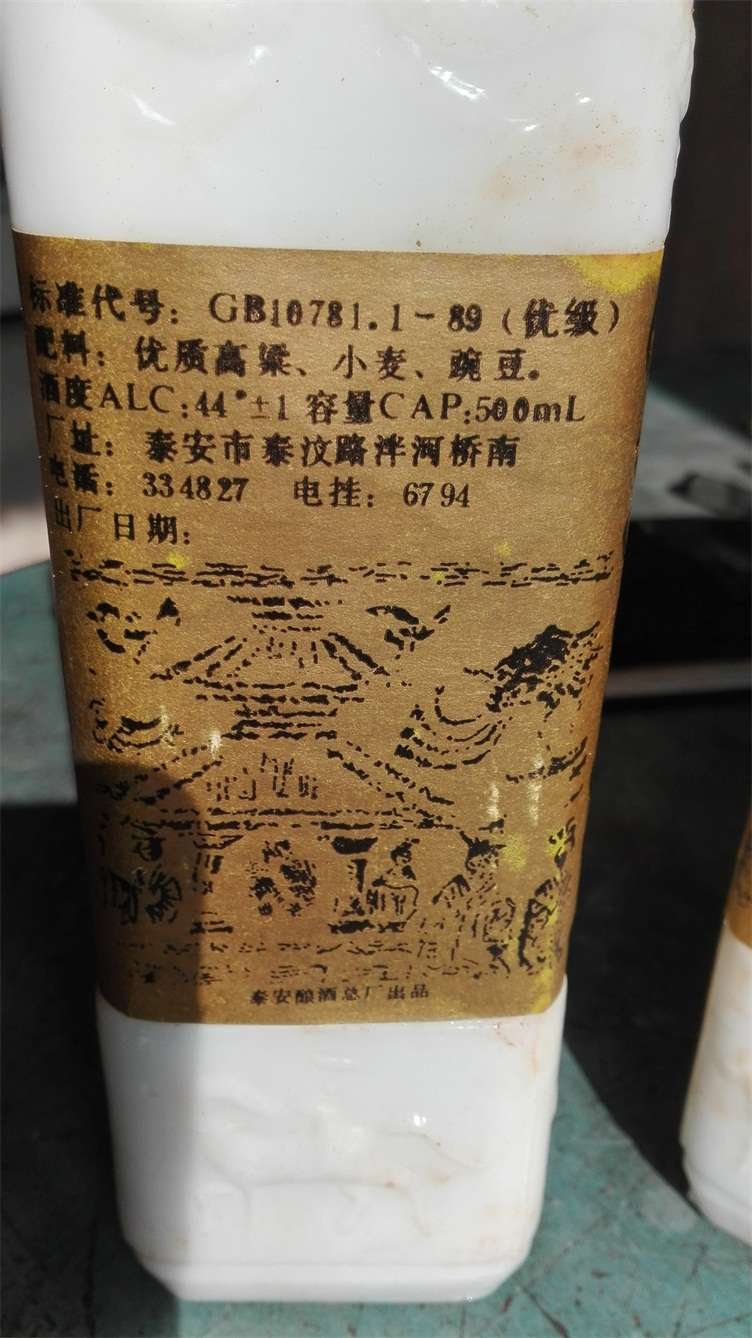 标准代号：GB10781.1-89（优级）
配料：优质高粱、小麦、豌豆。
酒度ALC:44°±1 容量CAP:500mL
厂址：泰安市泰汶路泮河桥南
电话：334827 电挂：6794
出厂日期：
泰安酿酒总厂出品